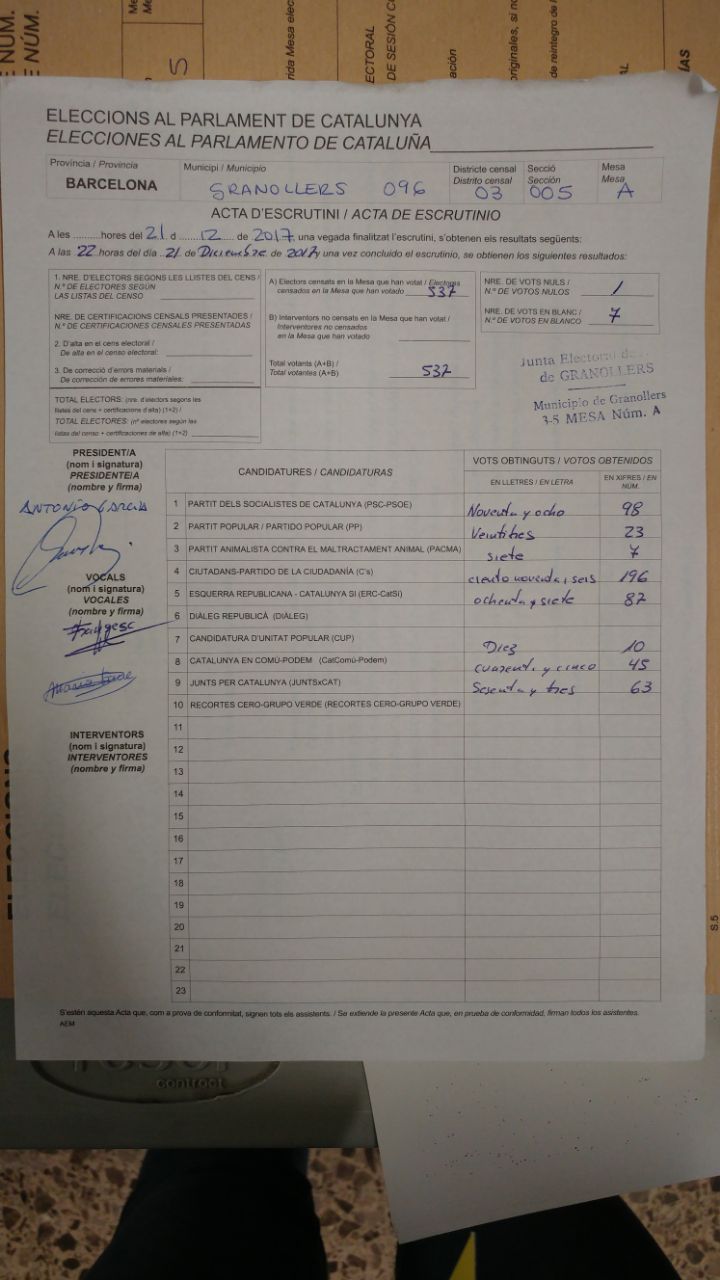 E NÚM.
E NÚM.
Me
Me
5
rida Mesa elec
ECTORAL
DE SESIÓN CO
ación
originales, si no
de reintegro de l
AL
ÍAS
ELECCIONS AL PARLAMENT DE CATALUNYA
ELECCIONES AL PARLAMENTO DE CATALUÑA
Província / Provincia Municipi / Municipio Districte censal Distrito censal Secció Sección Mesa Mesa
BARCELONA GRANOLLERS 096 03 005 A
ACTA D'ESCRUTINI / ACTA DE ESCRUTINIO
A les ..........hores del 21 d ..... 12 ..... de 2017, una vegada finalitzat l'escrutini, s'obtenen els resultats següents:
A las 22 horas del día 21 de Diciembre de 2017 y una vez concluido el escrutinio, se obtienen los siguientes resultados:
1. NRE. D'ELECTORS SEGONS LES LLISTES DEL CENS /
N.º DE ELECTORES SEGÚN
LAS LISTAS DEL CENSO
NRE. DE CERTIFICACIONS CENSALS PRESENTADES /
N.º DE CERTIFICACIONES CENSALES PRESENTADAS
2. D'alta en el cens electoral /
De alta en el censo electoral:
3. De correcció d'errors materials /
De corrección de errores materiales:
TOTAL ELECTORS: (nre. d'electors segons les
llistes del cens + certificacions d'alta) (1+2) /
TOTAL ELECTORES: (nº electores según las
listas del censo + certificaciones de alta) (1+2)
A) Electors censats en la Mesa que han votat / Electores
censados en la Mesa que han votado 537
B) Interventors no censats en la Mesa que han votat /
Interventores no censados
en la Mesa que han votado
Total votants (A+B) /
Total votantes (A+B) 537
NRE. DE VOTS NULS /
N.º DE VOTOS NULOS 1
NRE. DE VOTS EN BLANC /
N.º DE VOTOS EN BLANCO 7
Junta Electoral de
de GRANOLLERS
Municipio de Granollers
3-5 MESA Núm. A
PRESIDENT/A
(nom i signatura)
PRESIDENTE/A
(nombre y firma)
ANTONIO GARCIA
VOCALS
(nom i signatura)
VOCALES
(nombre y firma)
INTERVENTORS
(nom i signatura)
INTERVENTORES
(nombre y firma)
CANDIDATURES / CANDIDATURAS VOTS OBTINGUTS / VOTOS OBTENIDOS
EN LLETRES / EN LETRA EN XIFRES / EN NÚM.
1 PARTIT DELS SOCIALISTES DE CATALUNYA (PSC-PSOE) Noventa y ocho 98
2 PARTIT POPULAR / PARTIDO POPULAR (PP) Veintitres 23
3 PARTIT ANIMALISTA CONTRA EL MALTRACTAMENT ANIMAL (PACMA) siete 7
4 CIUTADANS-PARTIDO DE LA CIUDADANÍA (C's) ciento noventa, seis 196
5 ESQUERRA REPUBLICANA - CATALUNYA SÍ (ERC-CatSí) ochenta y siete 87
6 DIÀLEG REPUBLICÀ (DIÀLEG)
7 CANDIDATURA D'UNITAT POPULAR (CUP) Diez 10
8 CATALUNYA EN COMÚ-PODEM (CatComú-Podem) cuarenta y cinco 45
9 JUNTS PER CATALUNYA (JUNTSxCAT) Sesenta y tres 63
10 RECORTES CERO-GRUPO VERDE (RECORTES CERO-GRUPO VERDE)
11
12
13
14
15
16
17
18
19
20
21
22
23
S'estén aquesta Acta que, com a prova de conformitat, signen tots els assistents. / Se extiende la presente Acta que, en prueba de conformidad, firman todos los asistentes.
AEM
S.5
contract